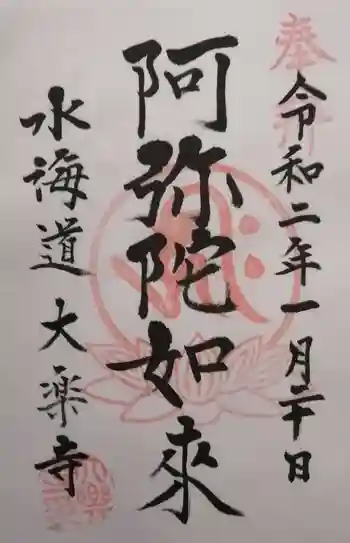 奉拝
令和二年一月二十日
阿弥陀如来
水海道 大楽寺